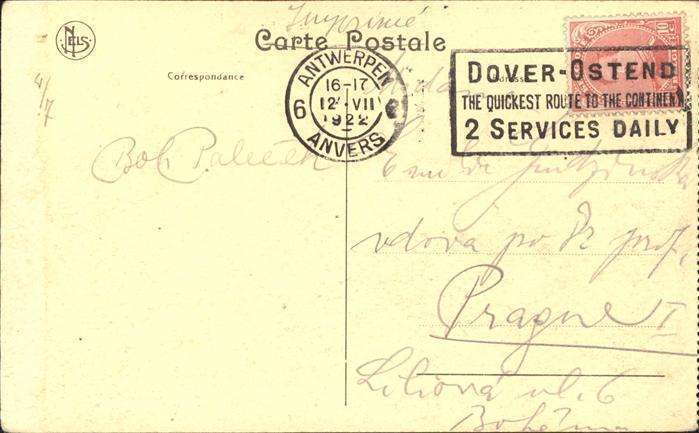 Imprimé
NELS
Carte Postale
Correspondance
4/7
ANTWERPEN
16-17
12 VII
1922
6 6
ANVERS
DOVER-OSTEND
THE QUICKEST ROUTE TO THE CONTINENT
2 SERVICES DAILY
10
Bob
vdova po Dr prof.
Prague I
Liliová ul. 6
Bohême